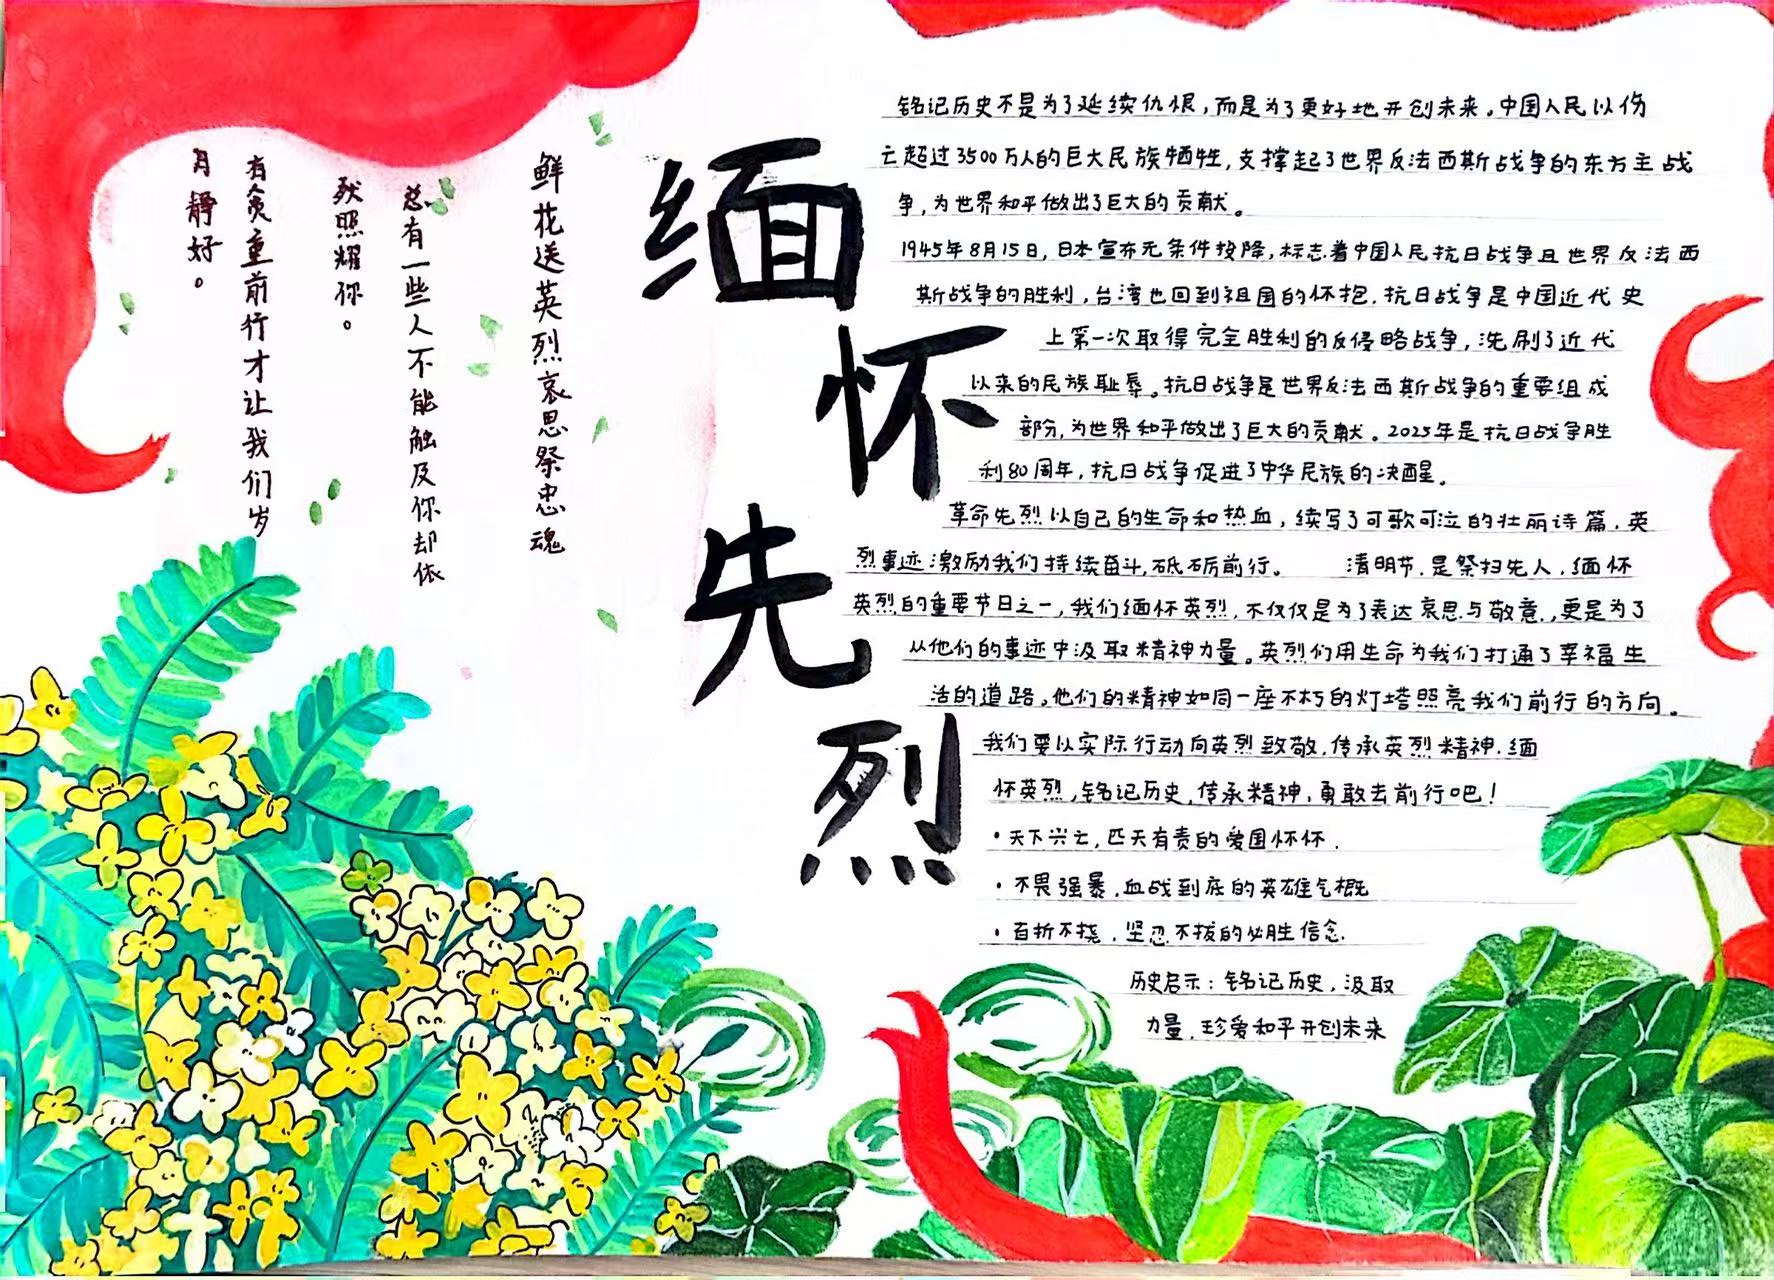 缅怀先烈
鲜花送英烈哀思祭忠魂
总有一些人不能触及你却依
然照耀你。
有负重前行才让我们岁
月静好。
铭记历史不是为了延续仇恨，而是为了更好地开创未来。中国人民以伤
亡超过3500万人的巨大民族牺牲，支撑起了世界反法西斯战争的东方主战
争，为世界和平做出了巨大的贡献。
1945年8月15日，日本宣布无条件投降，标志着中国人民抗日战争且世界反法西
斯战争的胜利，台湾也回到祖国的怀抱，抗日战争是中国近代史
上第一次取得完全胜利的反侵略战争，洗刷了近代
以来的民族耻辱。抗日战争是世界反法西斯战争的重要组成
部分，为世界和平做出了巨大的贡献。2025年是抗日战争胜
利80周年，抗日战争促进了中华民族的决醒。
革命先烈以自己的生命和热血，续写了可歌可泣的壮丽诗篇，英
烈事迹激励我们持续奋斗，砥砺前行。 清明节，是祭扫先人，缅怀
英烈的重要节日之一，我们缅怀英烈，不仅仅是为了表达哀思与敬意，更是为了
从他们的事迹中汲取精神力量。英烈们用生命为我们打通了幸福生
活的道路，他们的精神如同一座不朽的灯塔照亮我们前行的方向。
我们要以实际行动向英烈致敬，传承英烈精神，缅
怀英烈，铭记历史，传承精神，勇敢去前行吧！
·天下兴亡，匹夫有责的爱国怀怀，
·不畏强暴，血战到底的英雄气概
·百折不挠，坚忍不拔的必胜信念
历史启示：铭记历史，汲取
力量，珍爱和平开创未来